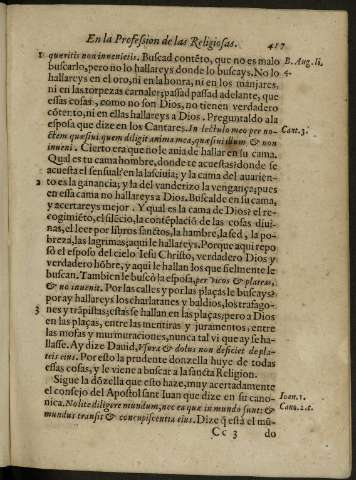 En la Profession de las Religiosas. 417
1 queritis non inuenietis. Buscad contẽto, que no es malo B. Aug. li.
buscarlo, pero no lo hallareys donde lo buscays. No lo 4.
hallareys en el oro, ni en la honra, ni en los manjares,
ni en las torpezas carnales; passad passad adelante, que
essas cosas, como no son Dios, no tienen verdadero
cõtento, ni en ellas hallareys a Dios. Preguntaldo a la
esposa que dize en los Cantares. In lectulo meo per no- Cant. 3.
ctem quæsiui quem diligit anima mea, quæsiui illum & non
inueni. Cierto era que no le auia de hallar en su cama.
Qual es tu cama hombre, donde te acuestas? donde se
acuesta el sensual? en la lasciuia; y la cama del auarien-
2 to es la ganancia; y la del vanderizo la vengança; pues
en essa cama no hallareys a Dios. Buscalde en su cama,
y acertareys mejor. Y qual es la cama de Dios? el re-
cogimiẽto, el silẽcio, la contẽplaciõ de las cosas diui-
nas, el leer por libros sanctos, la hambre, la sed, la po-
breza, las lagrimas; aqui le hallareys. Porque aqui repo
sò el esposo del cielo Iesu Christo, verdadero Dios y
verdadero hõbre, y aqui le hallan los que fielmente le
buscan. Tambien le buscò la esposa, per vicos & plateas,
& no inuenit. Por las calles y por las plaças le buscays?
por ay hallareys los charlatanes y baldios, los trafago-
3 nes y trãpistas; estas se hallan en las plaças, pero a Dios
en las plaças, entre las mentiras y juramentos, entre
las mofas y murmuraciones, nunca tal vi que ay se ha-
llasse. Ay dize Dauid, Vsura & dolus non deficiet de pla-
teis eius. Por esto la prudente donzella huye de todas
essas cosas, y le viene a buscar a la sancta Religion.
Sigue la dõzella que esto haze, muy acertadamente
el consejo del Apostol sant Iuan que dize en su cano- Ioan. 1.
nica. Nolite diligere mundum, nec ea quæ in mundo sunt: & Cano. 2. c.
mundus transit & concupiscentia eius. Dize q̃ està el mũ-
Cc 3 do